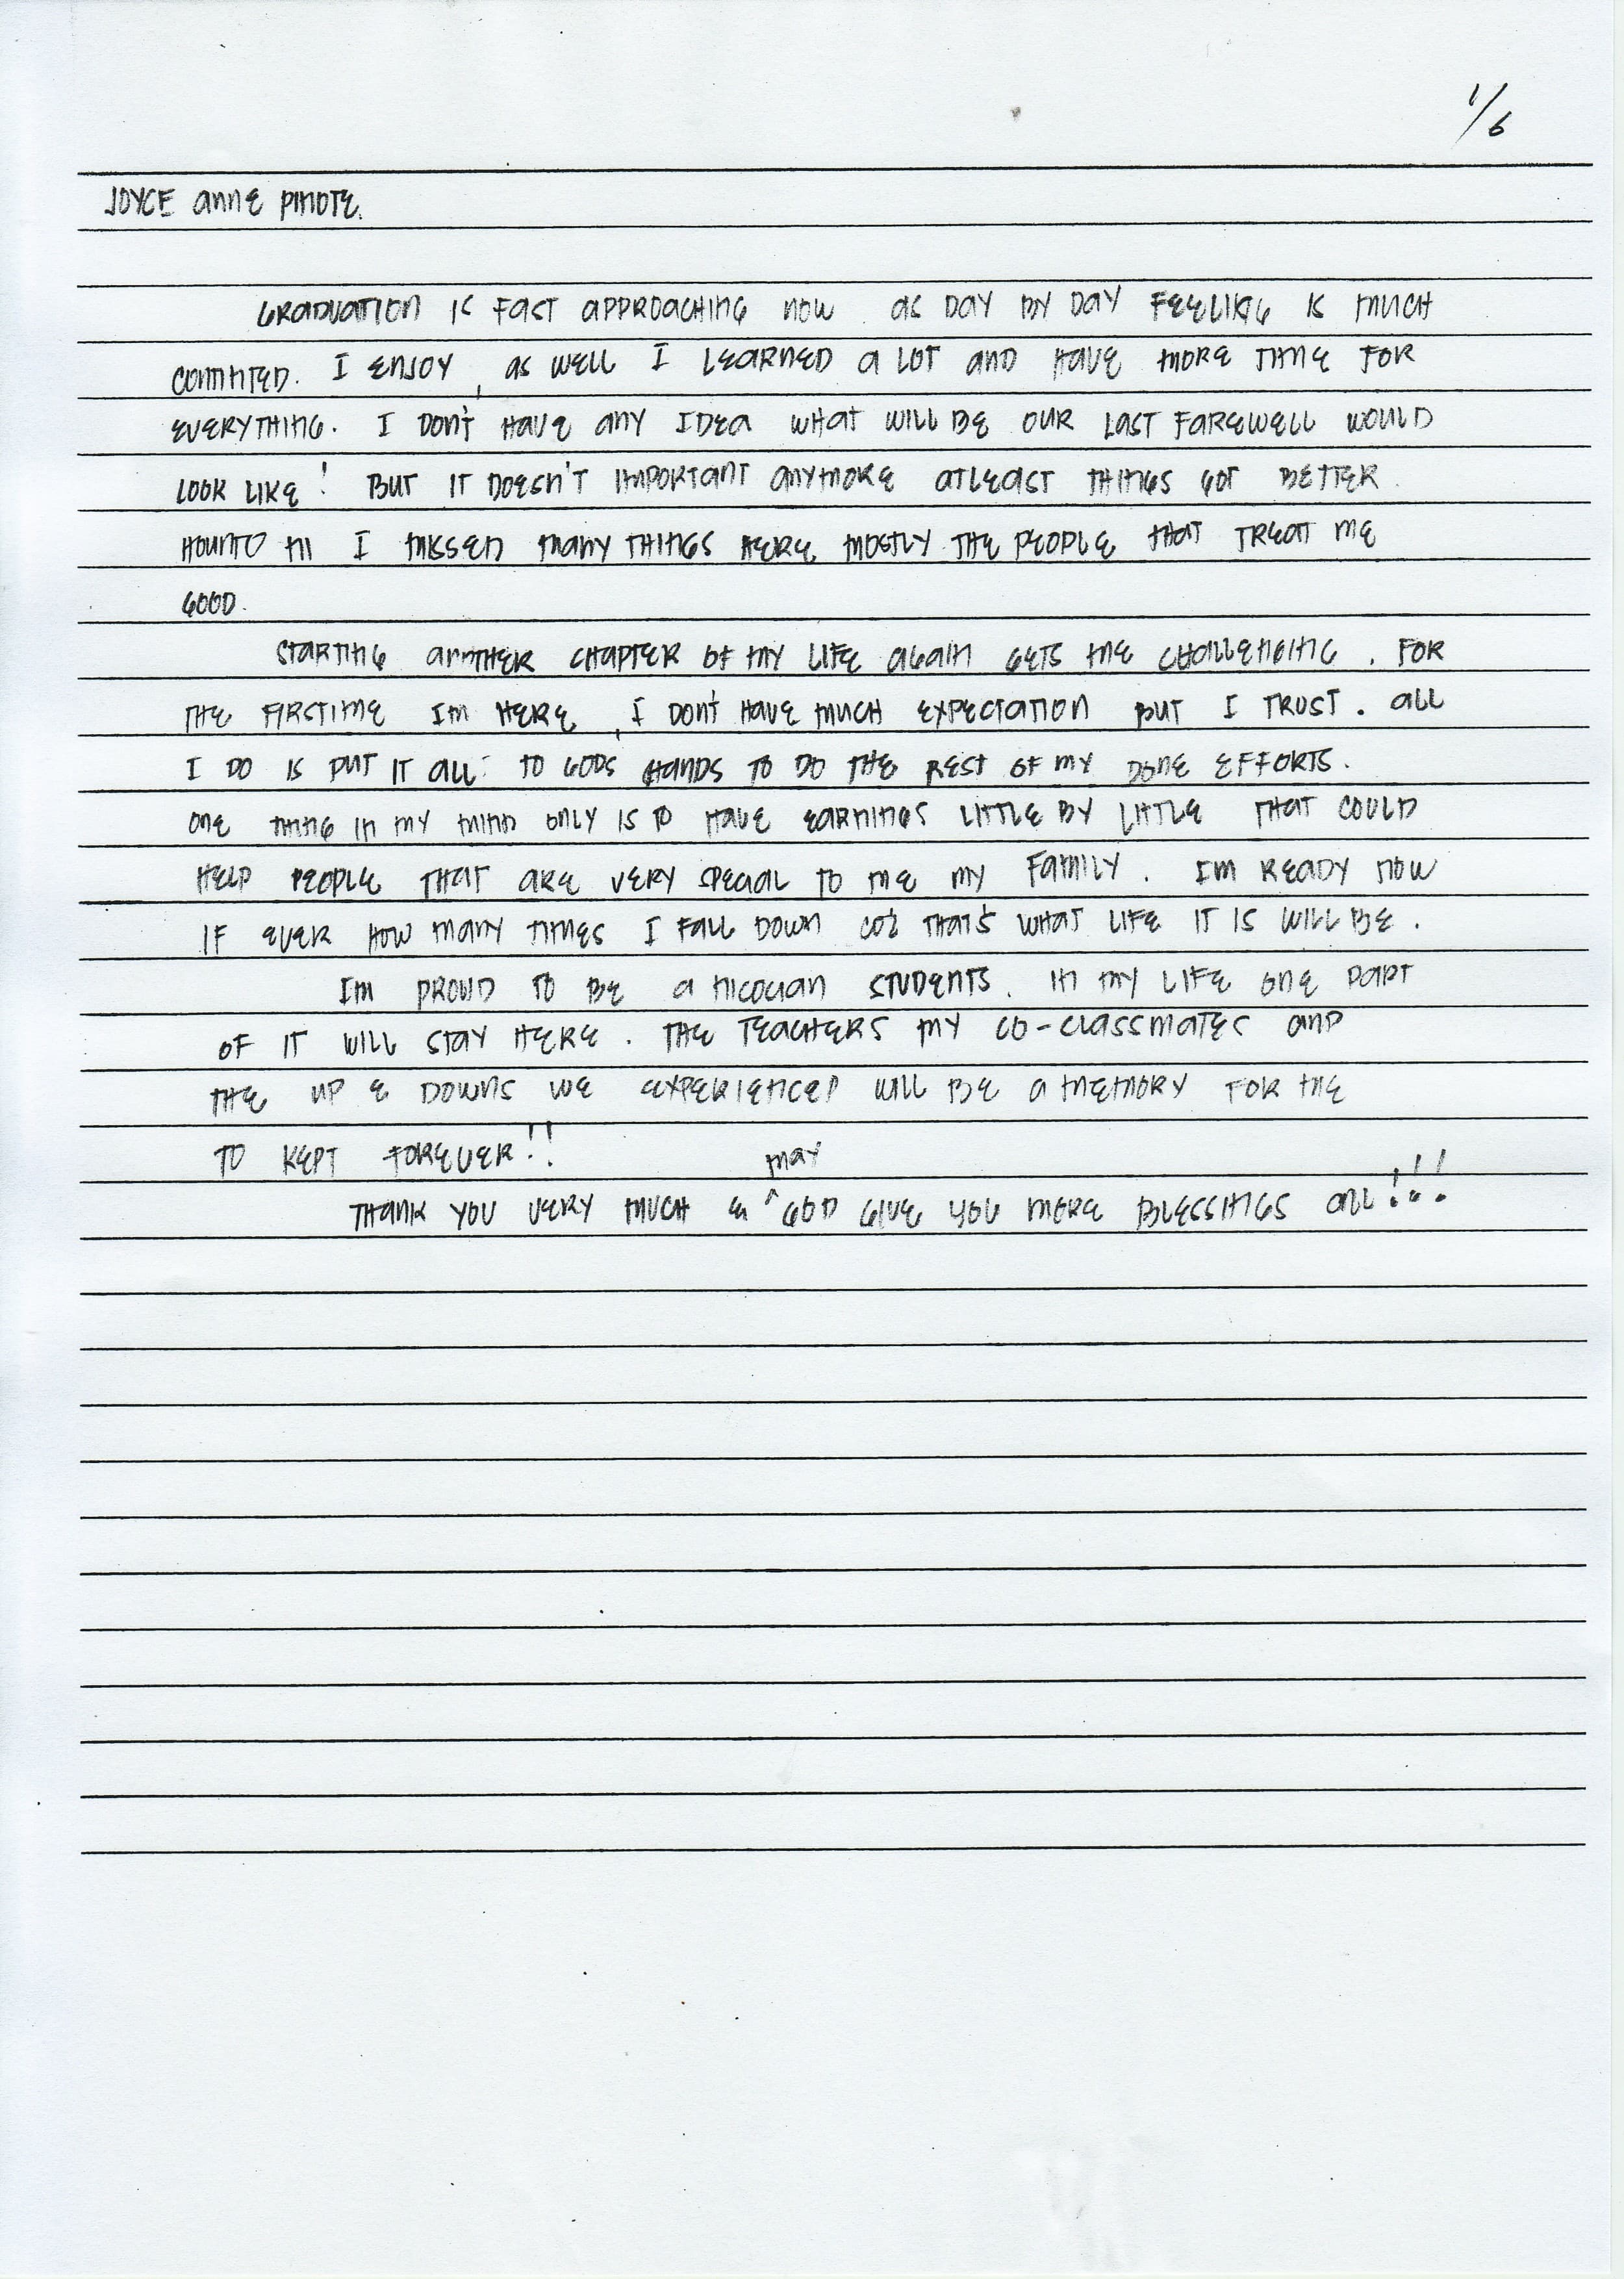 1/6
JOYCE ANNE PINOTE.
GRADUATION IS FAST APPROACHING NOW. AS DAY BY DAY FEELING IS MUCH
I ENJOY, AS WELL I LEARNED A LOT AND HAVE MORE TIME FOR
EVERYTHING. I DON'T HAVE ANY IDEA WHAT WILL BE OUR LAST FAREWELL WOULD
LOOK LIKE! BUT IT DOESN'T IMPORTANT ANYMORE ATLEAST THINGS GOT BETTER.
I MISSED MANY THINGS HERE MOSTLY THE PEOPLE THAT TREAT ME
GOOD.
STARTING ANOTHER CHAPTER OF MY LIFE AGAIN GETS ME CHALLENGING. FOR
THE FIRSTIME IM HERE, I DON'T HAVE MUCH EXPECTATION BUT I TRUST. ALL
I DO IS PUT IT ALL TO GODS HANDS TO DO THE REST OF MY DONE EFFORTS.
ONE THING IN MY MIND ONLY IS TO HAVE EARNINGS LITTLE BY LITTLE THAT COULD
HELP PEOPLE THAT ARE VERY SPECIAL TO ME MY FAMILY. IM READY NOW
IF EVER HOW MANY TIMES I FALL DOWN COZ THAT'S WHAT LIFE IT IS WILL BE.
IM PROUD TO BE A STUDENTS. IN MY LIFE ONE PART
OF IT WILL STAY HERE. THE TEACHERS MY CO-CLASSMATES AND
THE UP & DOWNS WE EXPERIENCED WILL BE A MEMORY FOR ME
TO KEPT FOREVER!!
THANK YOU VERY MUCH & MAY GOD GIVE YOU MORE BLESSINGS ALL!!!